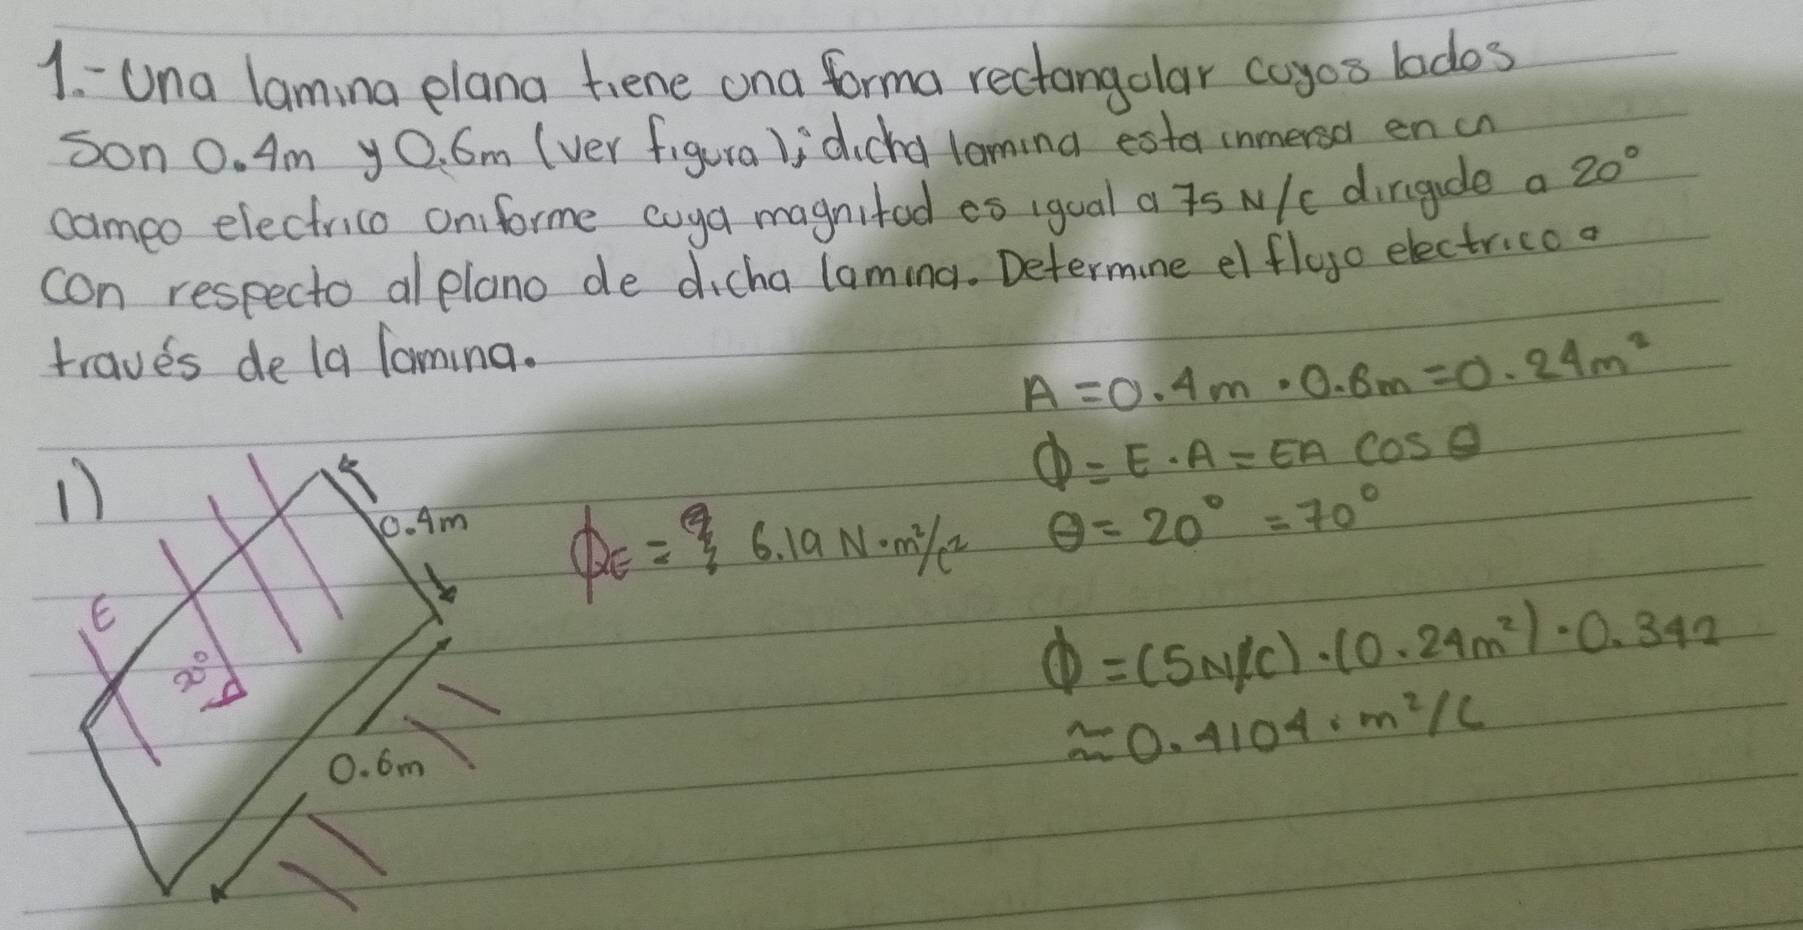 1.- Una lamina plana tiene una forma rectangular cuyos lados
son 0.4m y 0.6m (ver figura); dicha lamina esta inmersa en un
campo electrico uniforme cuya magnitud es igual a 75 N/C dirigido a 20°
con respecto al plano de dicha lamina. Determine el flujo electrico a
través de la lamina.
A = 0.4m · 0.6m = 0.24m²
1)
ϕ = E · A = EA cos θ
0.4m
ϕE = 6.19 N·m²/c²
θ = 20° = 70°
E
20°
ϕ = (5N/C) · (0.24m²) · 0.342
≈ 0.4104 · m²/C
0.6m